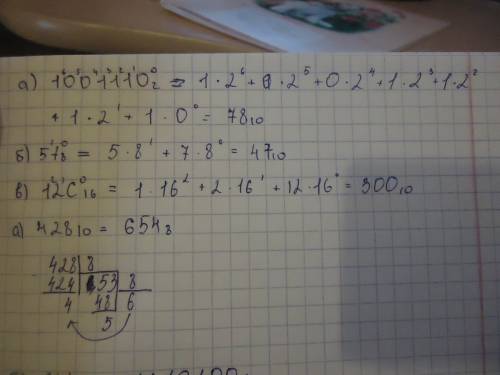 а) 1⁶0⁵0⁴1³1²1¹0⁰₂ = 1·2⁶+0·2⁵+0·2⁴+1·2³+1·2²
+ 1·2¹ + 1·0⁰ = 78₁₀
б) 5¹7⁰₈ = 5·8¹ + 7·8⁰ = 47₁₀
в) 1²2¹C⁰₁₆ = 1·16² + 2·16¹ + 12·16⁰ = 300₁₀
а) 428₁₀ = 654₈
428 8
424 53 8
4 48 6
5